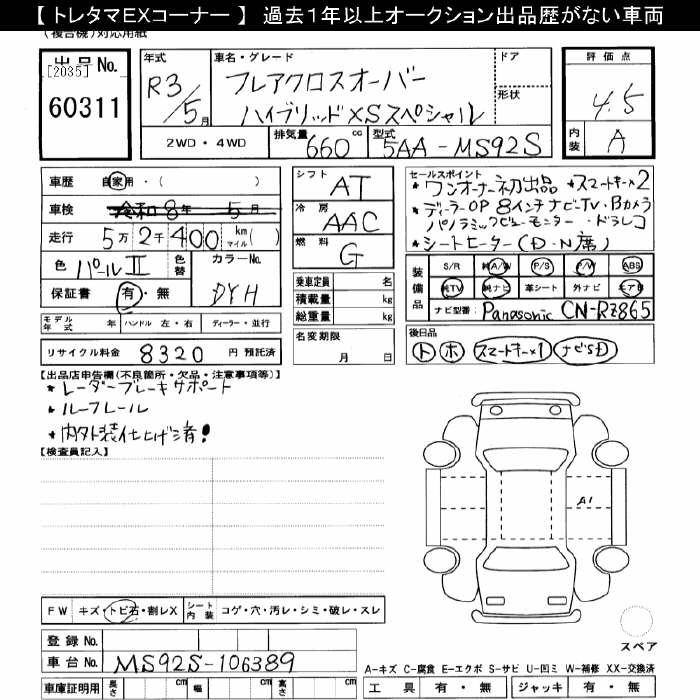 【 トレタマEXコーナー 】 過去1年以上オークション出品歴がない車両
(複合機)対応用紙
出品No.
[2035]
60311
年式
R3/5月
車名・グレード
フレアクロスオーバー
ハイブリッドXSスペシャル
ドア
形状
2WD・4WD
排気量
660 cc
型式
5AA-MS92S
評価点
4.5
内装
A
車歴 自家用・( )
車検 令和8年 5月
走行 5万2千400 km マイル( )
色 パールⅡ 色替 カラーNo. DYH
保証書 有・無
シフト AT
冷房 AAC
燃料 G
乗車定員 名
積載量 kg
総重量 kg
セールスポイント
*ワンオーナー初出品 *スマートキー×2
*ディーラーOP 8インチナビ・TV・Bカメラ
パノラミックビューモニター・ドラレコ
*シートヒーター(D・N席)
装備品
S/R 純A/W P/S P/W ABS
純TV 純ナビ 革シート 外ナビ エアB
ナビ型番: Panasonic CN-RZ865
モデル年式 年 ハンドル 左・右 ディーラー・並行
リサイクル料金 8320 円 預託済
名変期限
月 日
後日品
ト ホ スマートキー×1 ナビSD
【出品店申告欄(不良箇所・欠品・注意事項等)】
*レーダーブレーキサポート
*ルーフレール
*内外装仕上げ済!
【検査員記入】
A1
FW キズ・トビ石・割レX シート内装 コゲ・穴・汚レ・シミ・破レ・スレ
スペア
登録No.
車台No. MS92S-106389
車庫証明用 長さ cm 幅 cm 高さ cm
A-キズ C-腐食 E-エクボ S-サビ U-凹ミ W-補修 XX-交換済
工具 有・無 ジャッキ 有・無